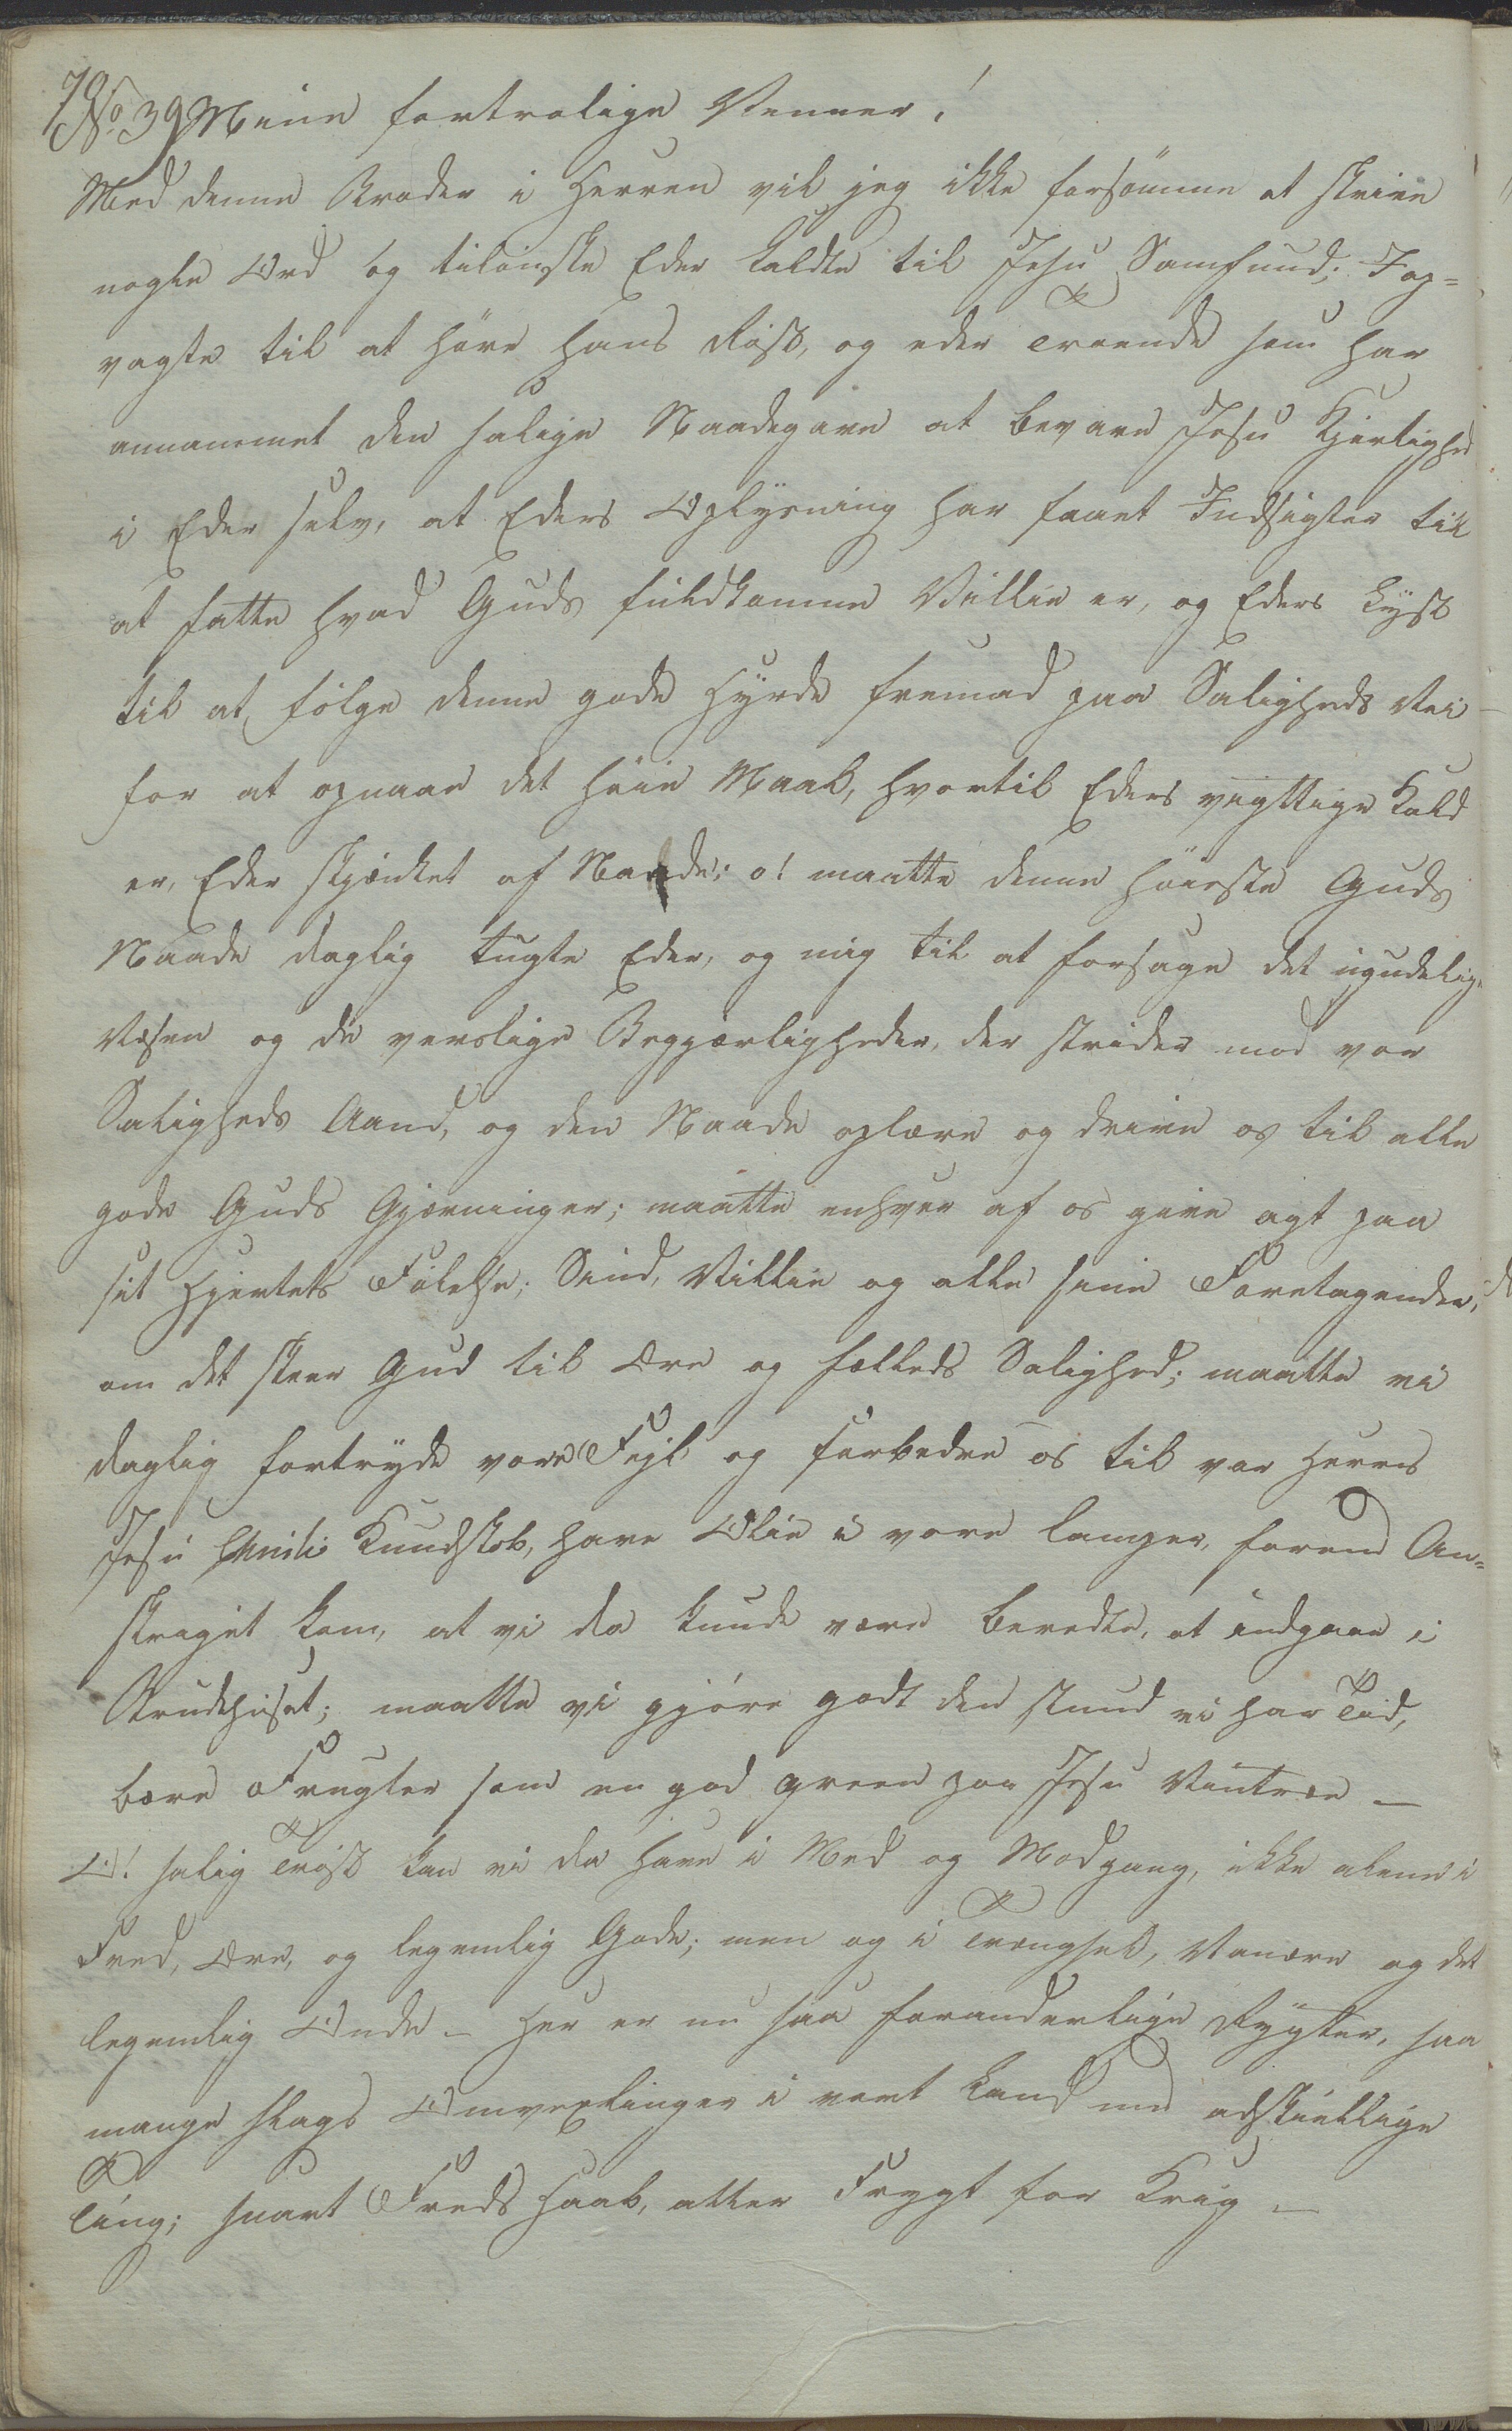 70
No 39 Mine fortrolige Venner!
Med denne Broder i Herren vil jeg ikke forsömme at skrive
nogle Ord og tilönske Eder kaldte til Jesu Samfund; Op=
vagte til at höre hans Röst, og eder Troende som har
annammet den salige Naadegave at bevare Jesu Kjerlighed
i Eder selv, at Eders Oplysning har faaet Indsigter til
at fatte hvad Guds fuldkomne Villie er, og Eders Lyst
til at fölge denne gode Hyrde fremad paa Saligheds Vei
for at opnaae det höie Maal, hvortil Eders vigttige Kald
er, Eder skjænket af Naade; o! maatte denne höieste Guds
Naade daglig tugte Eder, og mig til at forsage det ugudelige
Væsen og de verslige Begjærligheder, der strider mod vor
Saligheds Aand, og den Naade oplære og drive os til alle
gode Guds Gjerninger; maatte enhver af os give agt paa
sit Hjertets Fölelse; Sind, Villie og alle sine Foretagender,
om det skeer Gud til Ære og fælleds Salighed; maatte vi
daglig fortryde vore Fejl og forbedre os til vor Herres
Jesu Christi Kundskab, have Olie i vore Lamper, forend An=
skriget kom, at vi da kunde være beredte, at indgaae i
Brudehuset; maatte vi gjöre godt den stund vi har Tid,
bære Frugter som en god green paa Jesu Vintræe _
O! salig Tröst kan vi da have i Med og Modgang, ikke alene i
Fred, Ære, og legemlig Gode; men og i Trængsel, Vanære og det
legemlig Onde _ Her er nu saa foranderlige Rygter, saa
mange slags Omvexlinger i vort Land med adskiellige
Ting; snart Freds Haab, atter Frygt for Krig _